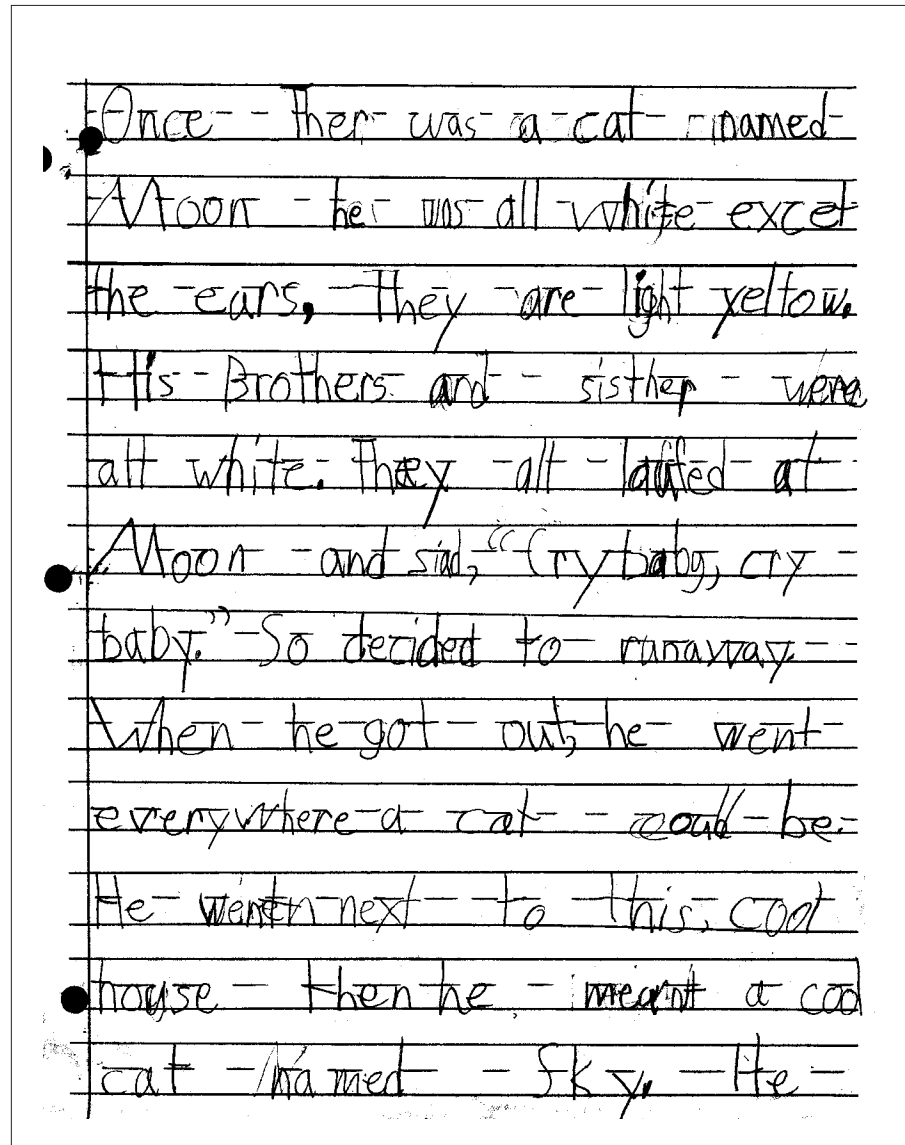 Once ther was a cat named
Moon he was all white excet
the ears. They are light yellow.
His Brothers and sisther were
all white. They all laufed at
Moon and siad, "Cry baby, cry
baby." So decided to runaway.
When he got out, he went
everywhere a cat could be.
He went next to this cool
house then he meant a cool
cat named Sky. He